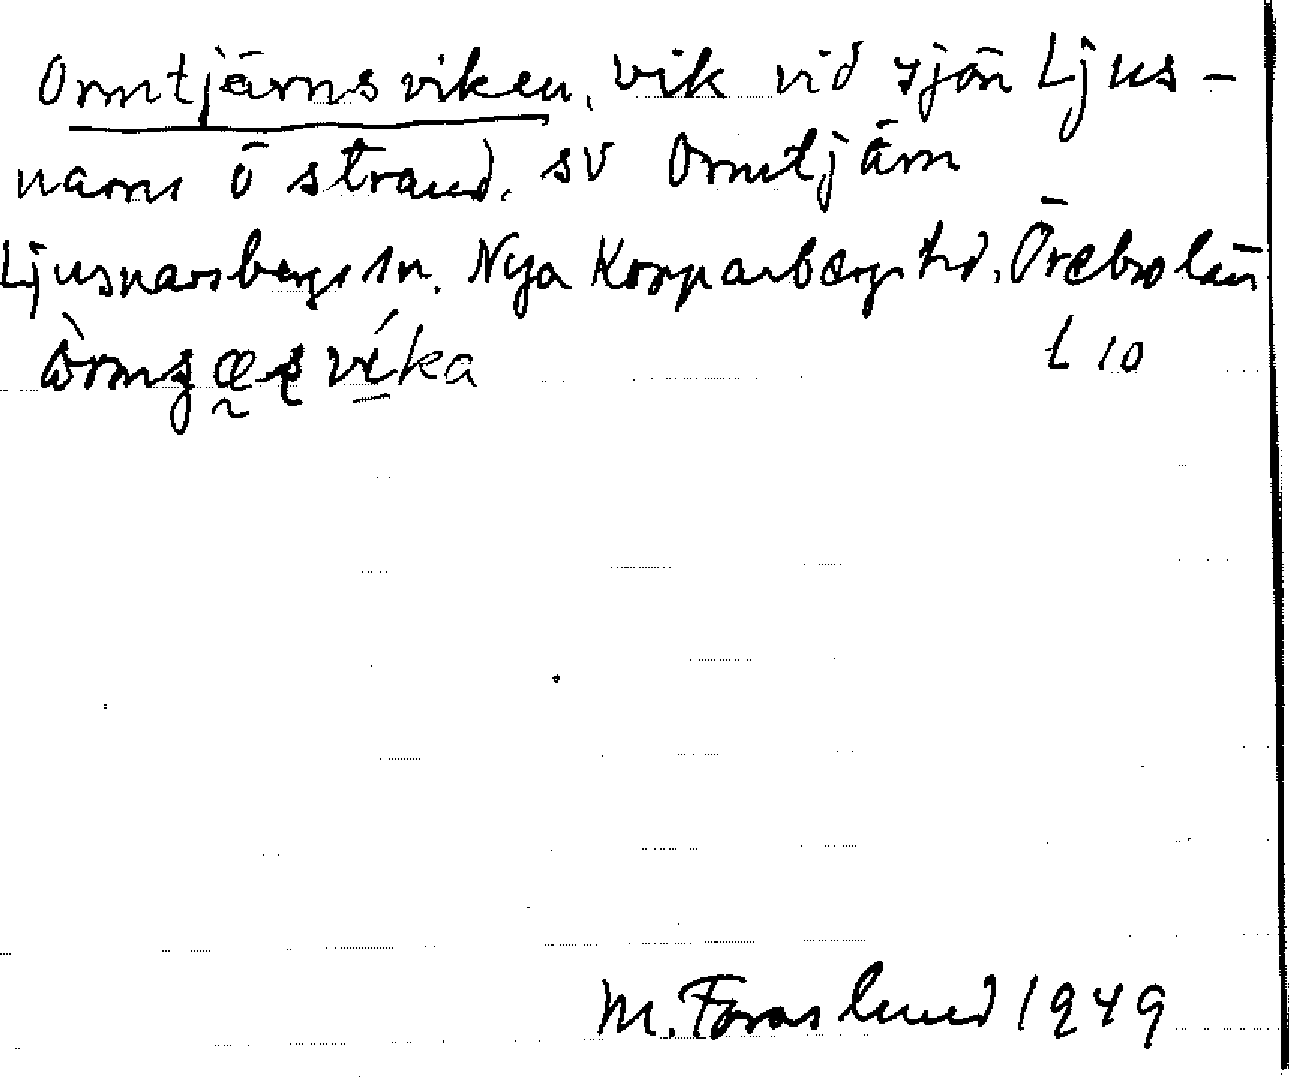 Ormtjärnsviken, vik vid sjön Ljus-
narns ö strand, sv Ormtjärn
Ljusnarsbergs sn, Nya Kopparbergs hd, Örebro län
víka L 10
M. Foraslund 1949